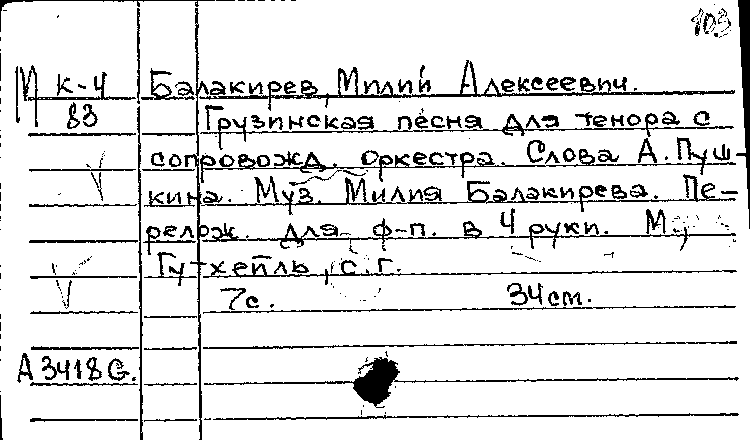 103
М К-4 Балакирев, Милий Алексеевич.
83 Грузинская песня для тенора с
сопровожд. оркестра. Слова А. Пуш-
кина. Муз. Милия Балакирева. Пе-
релож. для ф-п. в 4 руки. М.,
Гутхейль, с.г.
7с. 34см.
А3418G.